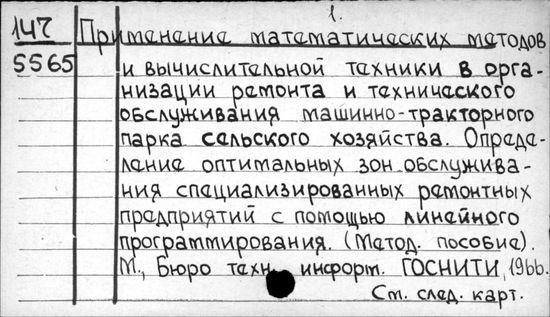 1.
147 Применение математических методов
5565 и вычислительной техники в орга-
низации ремонта и технического
обслуживания машинно-тракторного
парка сельского хозяйства. Опреде-
ление оптимальных зон обслужива-
ния специализированных ремонтных
предприятий с помощью линейного
программирования. (Метод. пособие).
М., Бюро техн. информ. ГОСНИТИ, 1966.
См. след. карт.